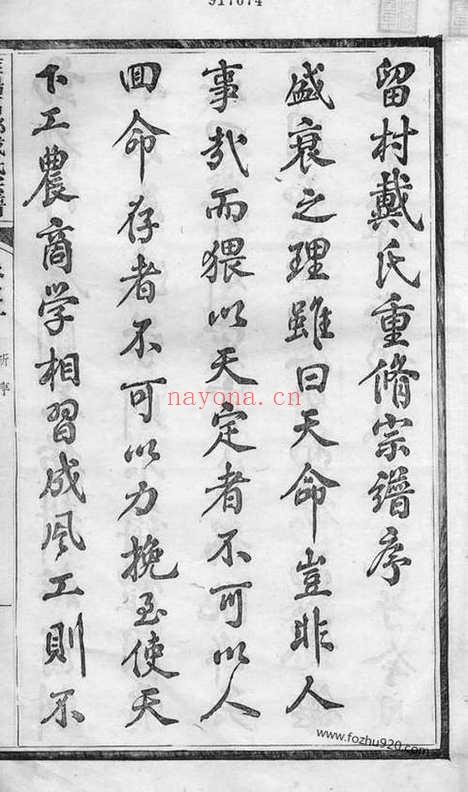 917674
留村戴氏重脩宗譜序
盛衰之理雖曰天命豈非人
事哉而猥以天定者不可以人
回命存者不可以力挽至使天
下工農商学相習成风工則不
新序
nayona.cn
www.fozhu920.com